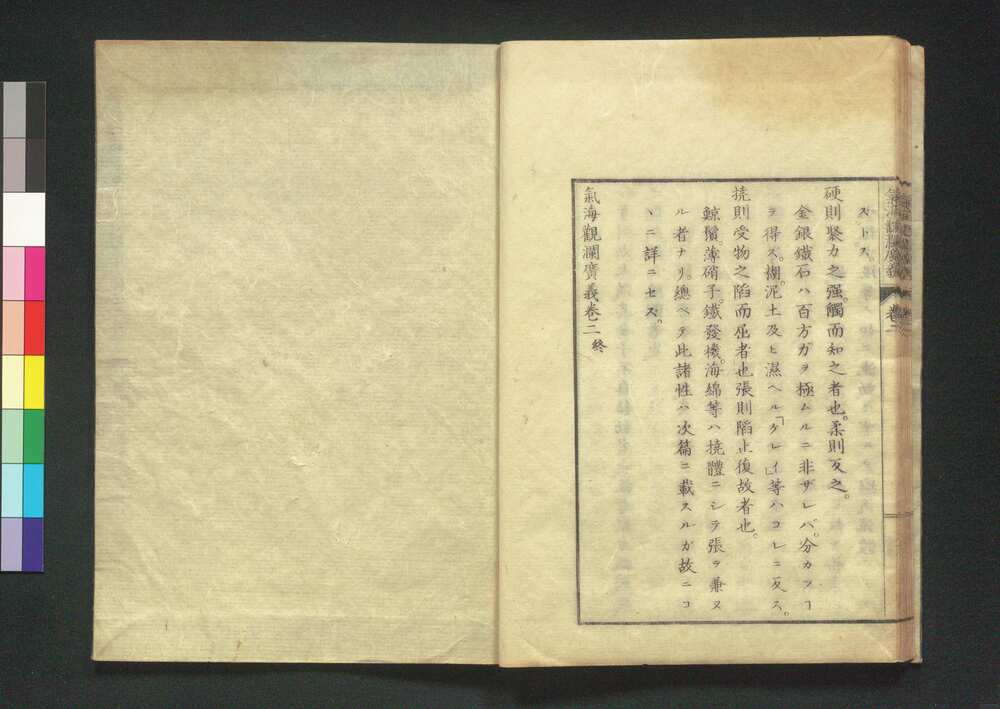 氣海觀瀾廣義 卷二
ストス。
硬則聚力之强。觸而知之者也。柔則反之。
金銀鐵石ハ百方力ヲ極ムルニ非ザレバ。分カツコ
ヲ得ズ。糊泥土及ヒ濕ヘル「クレイ」等ハコレニ反ス。
撓則受物之陷而屈者也張則陷止復故者也。
鯨鬚。薄硝子。鐵發機。海綿等ハ撓體ニシテ張ヲ兼ヌ
ル者ナリ。總ベテ此諸性ハ次篇ニ載スルガ故ニコ
ヽニ詳ニセズ。
氣海觀瀾廣義卷二終